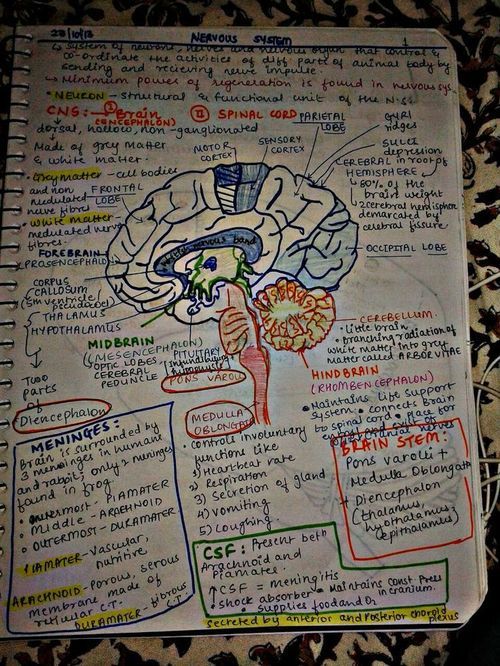 28/10/13 NERVOUS SYSTEM 1
System of neurons, nerves and nervous organ that control &
co-ordinate the activities of diff. parts of animal body by
sending and recieving nerve impulse.
Minimum power of regeneration is found in nervous sys.
NEURON - structural & functional unit of the N.S.
CNS: I Brain II SPINAL CORD
(ENCEPHALON)
dorsal, hollow, non-ganglionated
Made of grey matter
& white matter.
Grey matter - cell bodies
and non
medulated
nerve fibre
White matter
medulated nerve
fibres.
FRONTAL
LOBE
MOTOR
CORTEX
SENSORY
CORTEX
PARIETAL
LOBE
GYRI
ridges
SULCI
depression
CEREBRAL
HEMISPHERE
80% of the
brain weight
2 cerebral hemisphere
demarcated by
cerebral fissure
OCCIPITAL LOBE
nervous band
FOREBRAIN
(PROSENCEPHALON)
CORPUS
CALLOSUM
THALAMUS
HYPOTHALAMUS
Two
parts
of
Diencephalon
MIDBRAIN
(MESENCEPHALON)
OPTIC LOBES,
CEREBRAL
PEDUNCLE
PITUITARY
PONS VAROLI
MEDULLA
OBLONGATA
controls involuntary
functions like
1) Heartbeat rate
2) Respiration
3) Secretion of gland
4) vomiting
5) coughing.
CEREBELLUM.
Little brain
Branching radiation of
white matter into grey
matter called ARBOR VITAE
HINDBRAIN
(RHOMBENCEPHALON)
Maintains life support
system. connects Brain
to spinal cord. place for
cranial nerves
BRAIN STEM:
Pons varolli +
Medulla Oblongata
+ Diencephalon
(thalamus,
hypothalamus,
epithalamus)
MENINGES:
Brain is surrounded by
3 meninges in humans
and rabbit; only 2 meninges
found in frog.
outermost - PIAMATER
Middle - ARACHNOID
OUTERMOST - DURAMATER
PIAMATER - Vascular,
nutritive,
ARACHNOID - Porous, serous
membrane made of
reticular C.T.
DURAMATER - fibrous
C.T.
CSF: Present betn
Arachnoid and
Piamater.
↑ CSF = meningitis
shock absorber • Maintains const. Press
in cranium.
supplies food and O2
secreted by anterior and Posterior choroid
plexus